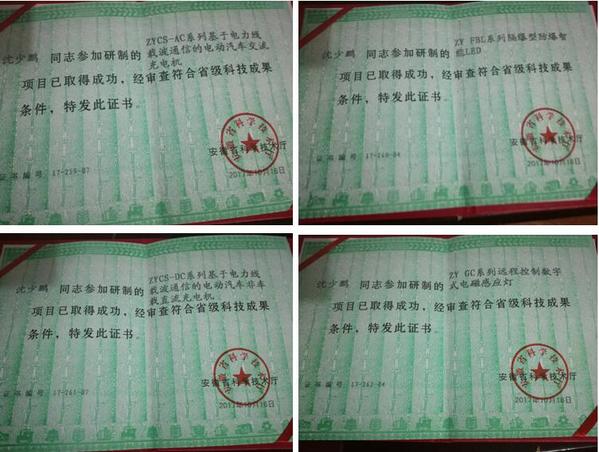 ZYCS-AC系列基于电力线
载波通信的电动汽车交流
充电机
沈少鹏 同志参加研制的
项目已取得成功，经审查符合省级科技成果
条件，特发此证书。
安徽省科学技术厅
证书编号 17-259-07
2017年10月18日
ZY FBL系列隔爆型防爆智
能LED
沈少鹏 同志参加研制的
项目已取得成功，经审查符合省级科技成果
条件，特发此证书。
安徽省科学技术厅
证书编号 17-260-04
2017年10月18日
ZYCS-DC系列基于电力线
载波通信的电动汽车非车
载直流充电机
沈少鹏 同志参加研制的
项目已取得成功，经审查符合省级科技成果
条件，特发此证书。
安徽省科学技术厅
证书编号 17-261-07
2017年10月18日
ZY GC系列远程控制数字
式电磁感应灯
沈少鹏 同志参加研制的
项目已取得成功，经审查符合省级科技成果
条件，特发此证书。
安徽省科学技术厅
证书编号 17-262-04
2017年10月18日